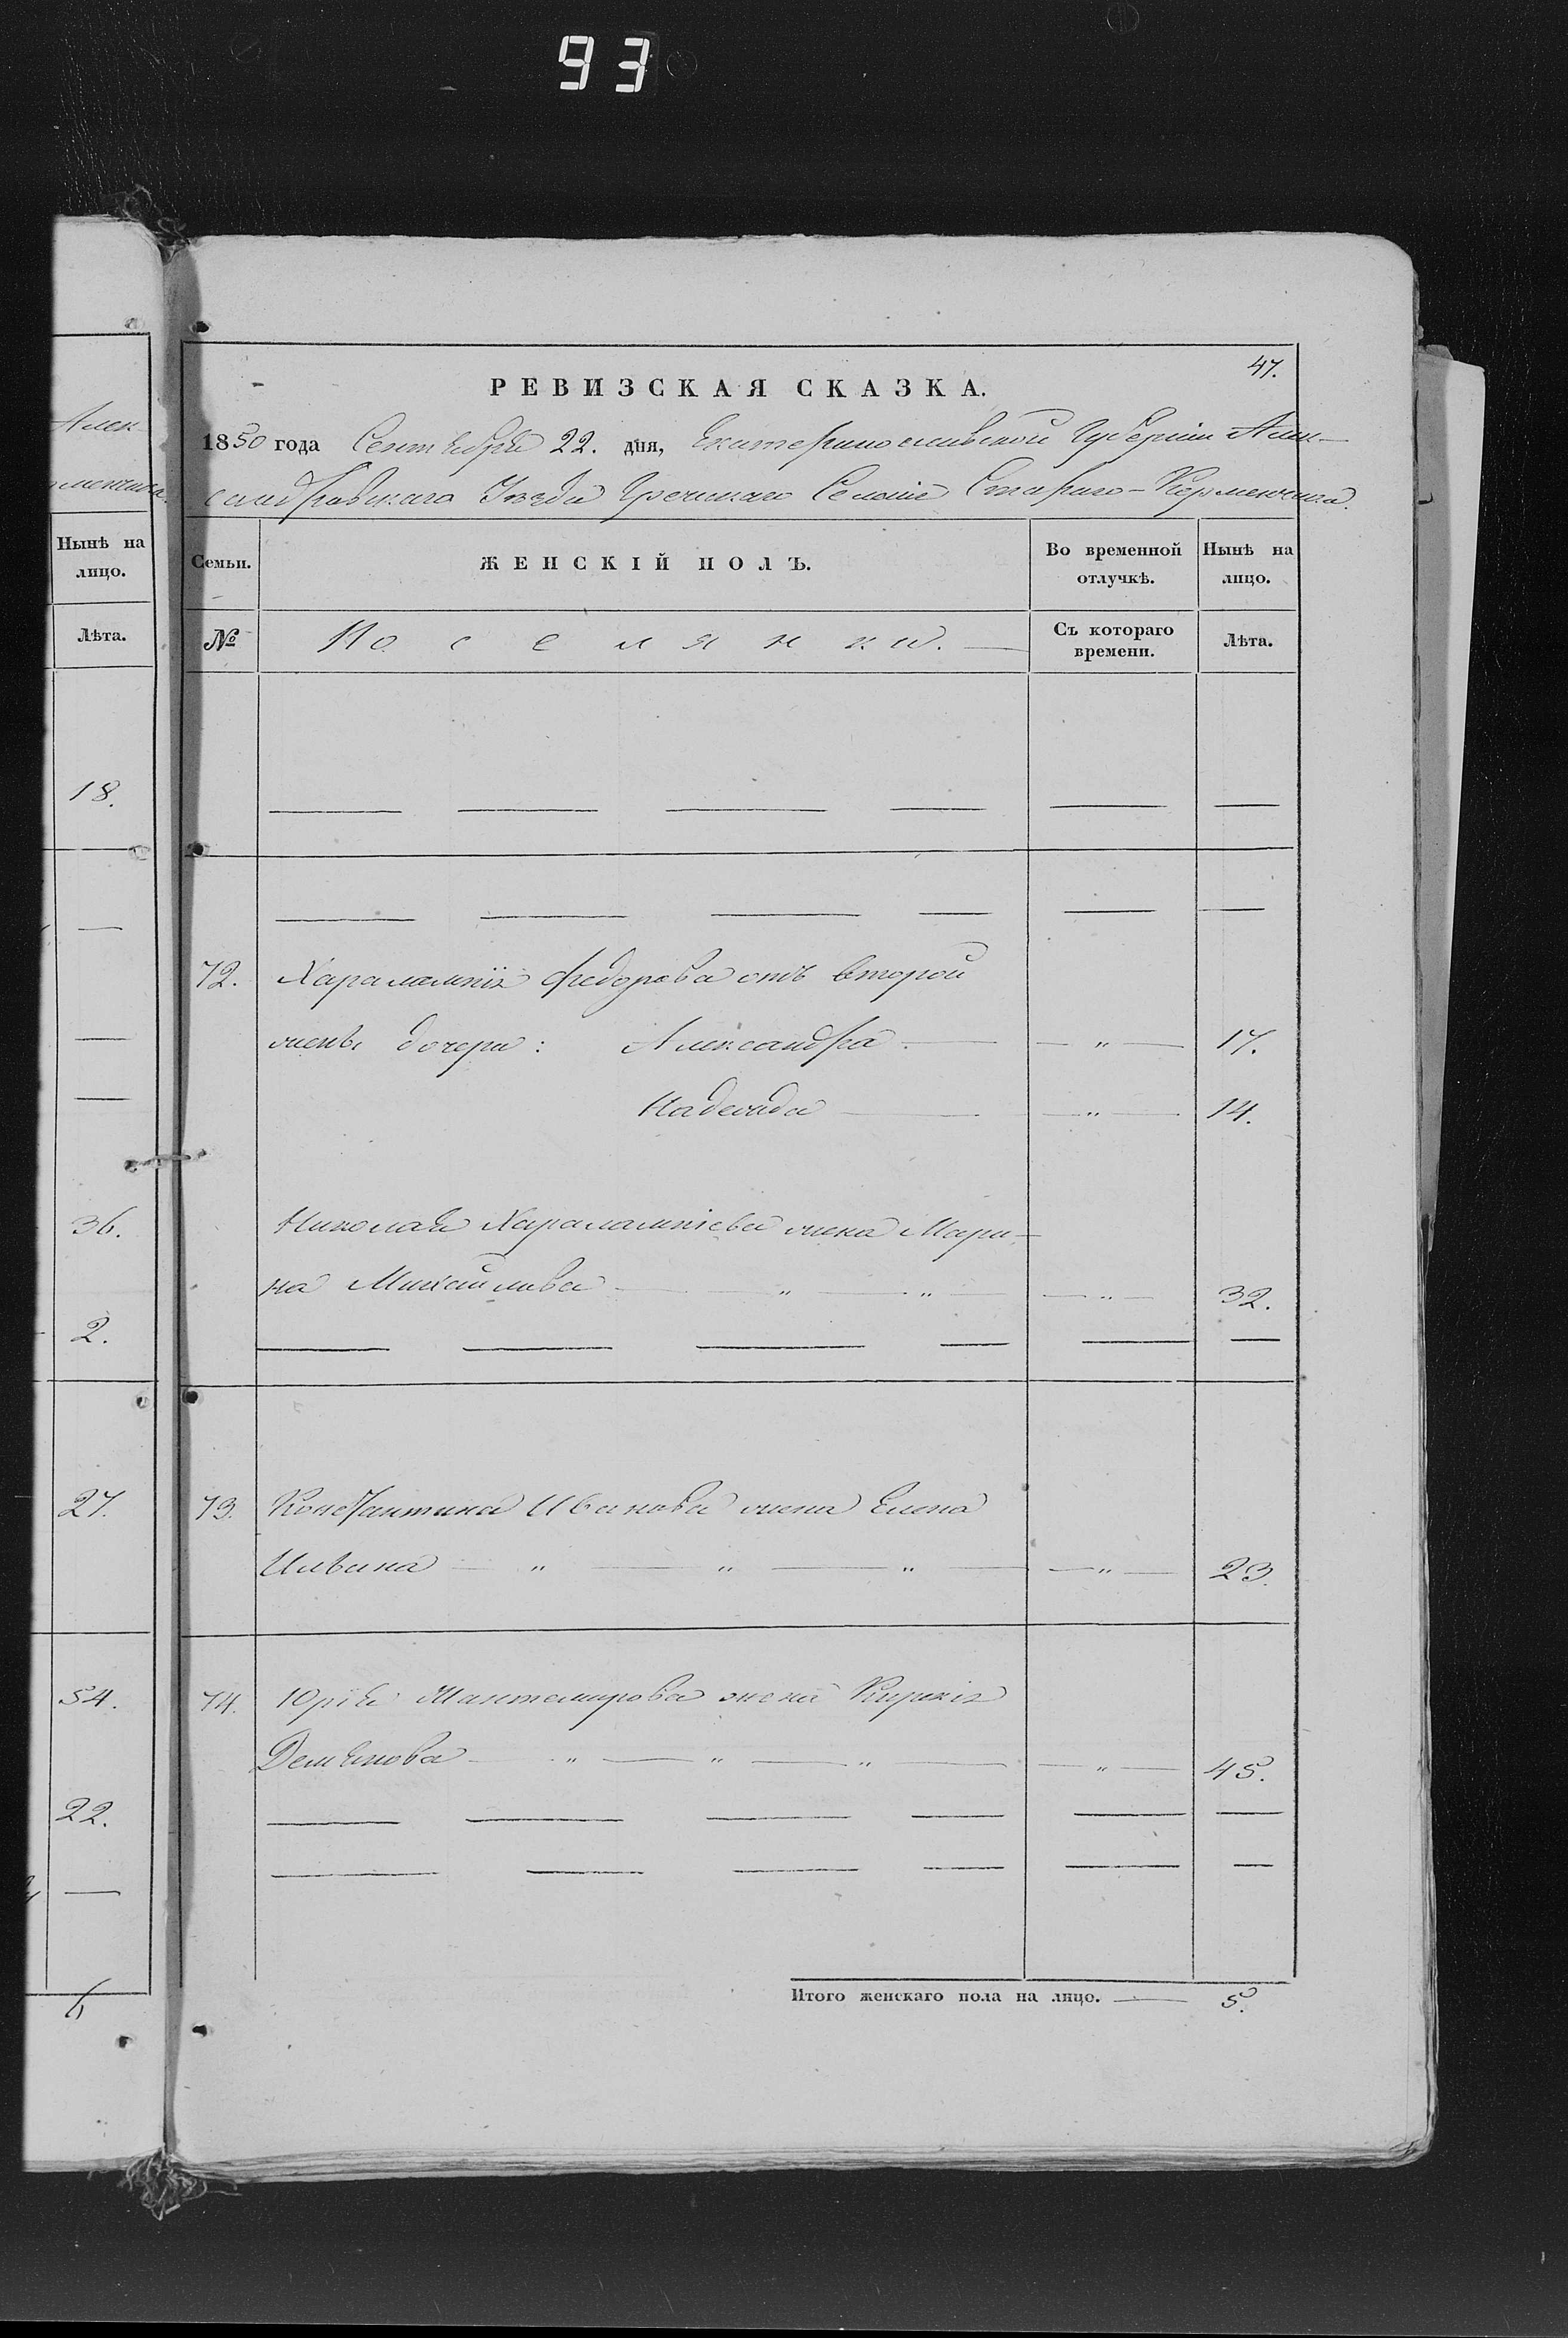 93
Алек-
менчика.
Нынѣ на
лицо.
Лѣта.
18.
36.
2.
27.
54.
22.
6
47.
РЕВИЗСКАЯ СКАЗКА.
1850 года Сентября 22. дня, Екатеринославской Губерніи Алек-
сандровскаго Уѣзда Греческаго Селенія Стараго-Керменчика.
Семьи.
ЖЕНСКІЙ ПОЛЪ.
Во временной
отлучкѣ.
Нынѣ на
лицо.
№
Поселянки.
Съ котораго
времени.
Лѣта.
72. Харалампія Федорова отъ второй
жены дочери: Александра — " — 17.
Надежда — " — 14.
Николая Харалампіева жена Мари-
на Михайлова — " — " — " — 32.
73. Константина Иванова жена Елена
Ильина — " — " — " — " — 23.
74. Юрія Мантемирова жена
— " — " — " — " — 45.
Итого женскаго пола на лицо. — 5.